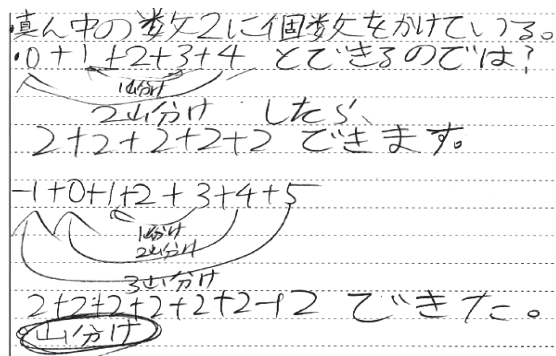 ・真ん中の数2に個数をかけている。
・0+1+2+3+4 とできるのでは?
1山分け
2山分け したら、
2+2+2+2+2 できます。
-1+0+1+2+3+4+5
1山分け
2山分け
3山分け
2+2+2+2+2+2+2 できた。
山分け